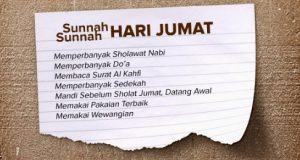 Sunnah
Sunnah HARI JUMAT
Memperbanyak Sholawat Nabi
Memperbanyak Do'a
Membaca Surat Al Kahfi
Memperbanyak Sedekah
Mandi Sebelum Sholat Jumat, Datang Awal
Memakai Pakaian Terbaik
Memakai Wewangian